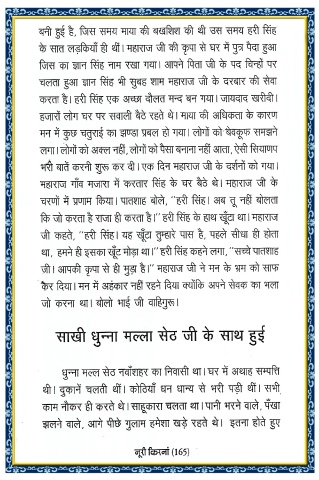 बनी हुई है, जिस समय माया की बखशिश की थी उस समय हरी सिंह
के सात लड़कियाँ ही थीं। महाराज जी की कृपा से घर में पुत्र पैदा हुआ
जिस का ज्ञान सिंह नाम रखा गया। आपने पिता जी के पद चिन्हों पर
चलता हुआ ज्ञान सिंह भी सुबह शाम महाराज जी के दरबार की सेवा
करता है। हरी सिंह एक अच्छा दौलत मन्द बन गया। जायदाद खरीदी।
हजारों लोग घर पर सवाली बैठे रहते थे। माया की अधिकता के कारण
मन में कुछ चतुराई का झण्डा प्रबल हो गया। लोगों को बेवकूफ समझने
लगा। लोगों को अक्ल नहीं, लोगों को पैसा बनाना नहीं आता, ऐसी सियाणप
भरी बातें करनी शुरू कर दी। एक दिन महाराज जी के दर्शनों को गया।
महाराज गाँव मजारा में करतार सिंह के घर बैठे थे। महाराज जी के
चरणों में प्रणाम किया। पातशाह बोले, ''हरी सिंह। अब तू नहीं बोलता
कि जो करता है राजा ही करता है।'' हरी सिंह के हाथ खूँटा था। महाराज
जी कहते, ''हरी सिंह। यह खूँटा तुम्हारे पास है, पहले सीधा ही होता
था, हमने ही इसका खूँट मोड़ा था।'' हरी सिंह कहने लगा, ''सच्चे पातशाह
जी। आपकी कृपा से ही मुड़ा है।'' महाराज जी ने मन के भ्रम को साफ
कर दिया। मन में अहंकार नहीं रहने दिया क्योंकि अपने सेवक का भला
जो करना था। बोलो भाई जी वाहिगुरू।
साखी धुन्ना मल्ला सेठ जी के साथ हुई
धुन्ना मल्ल सेठ नवाँशहर का निवासी था। घर में अथाह सम्पत्ति
थी। दुकानें चलती थीं। कोठियाँ धन धान्य से भरी पड़ी थीं। सभी
काम नौकर ही करते थे। साहूकारा चलता था। पानी भरने वाले, पँखा
झलने वाले, आगे पीछे गुलाम हमेशा खड़े रहते थे। इतना होते हुए
नूरी किरनां (165)